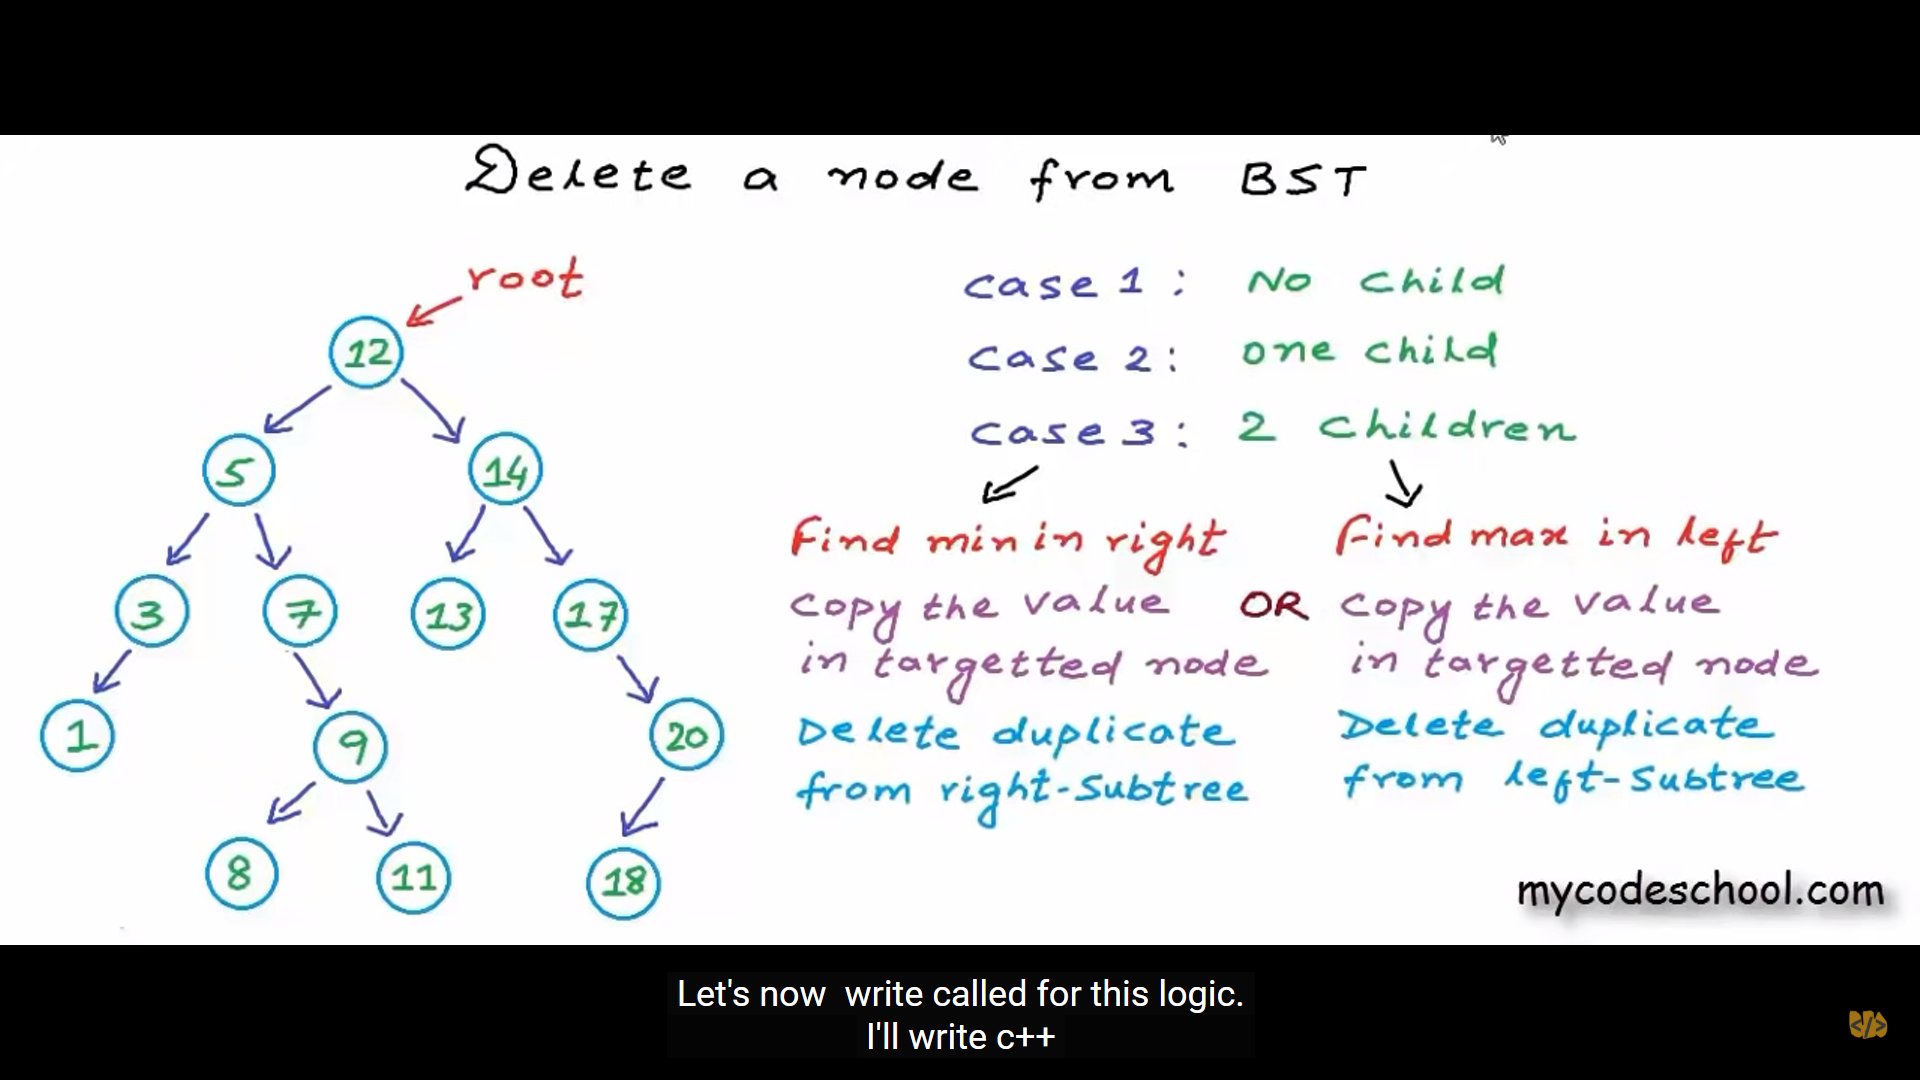 Delete a node from BST
root
12
5
14
3
7
13
17
1
9
20
8
11
18
case 1 : No child
case 2 : one child
case 3 : 2 children
Find min in right
copy the value
in targetted node
Delete duplicate
from right-subtree
OR
Find max in left
copy the value
in targetted node
Delete duplicate
from left-subtree
mycodeschool.com
Let's now write called for this logic.
I'll write c++